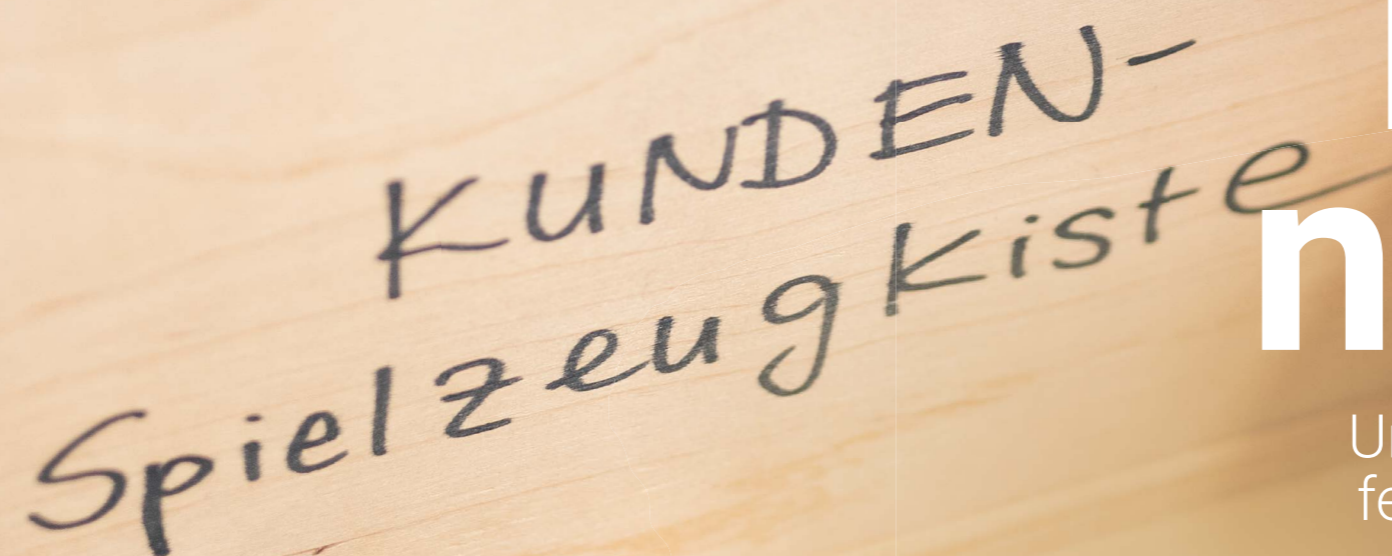 KUNDEN-
Spielzeugkiste